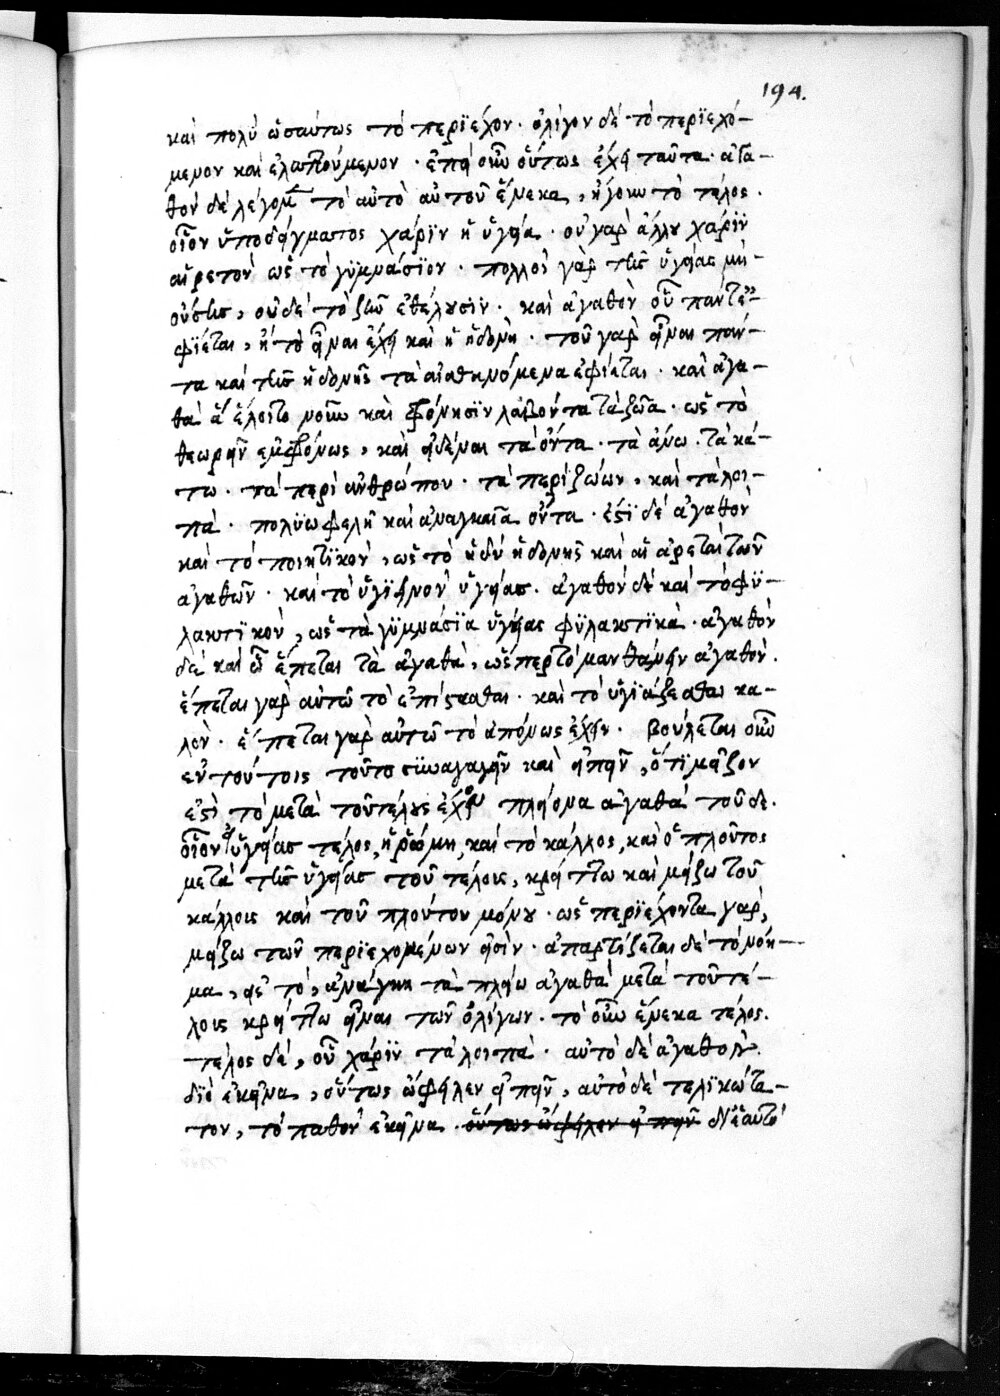 194.
καὶ πολὺ ὡσαύτως τὸ περϊέχον · ὀλίγον δὲ τὸ περϊεχό-
μενον καὶ ἐλαττούμενον · ἐπεὶ οὖν οὕτως ἔχει ταῦτα · ἀγα-
θὸν δὲ λέγομεν τὸ αὐτὸ αὑτοῦ ἕνεκα, ἤγουν τὸ τέλος ·
οἷον ὑποδείγματος χάρϊν ἡ ὑγεία · οὐ γὰρ ἄλλου χάρϊν
αἱρετὸν ὡς τὸ γϋμνάσϊον · πολλοὶ γὰρ τῆς ὑγείας μὴ -
οὔσης, οὐδὲ τὸ ζῆν ἐθέλουσϊν · καὶ ἀγαθὸν οὗ πάντ᾽ ἐ-
φϊεται, ἢ τὸ εἶναι ἔχει καὶ ἡ ἡδονὴ · τοῦ γὰρ εἶναι πάν-
τα καὶ τῆς ἡδονῆς τὰ αἰσθανόμενα ἐφίεται · καὶ ἀγα-
θὰ ἃ ἕλοιτο νοῦν καὶ φρόνησϊν λαβόντα τὰ ζῶα · ὡς τὸ
θεωρεῖν ἐμφρόνως, καὶ εἰδέναι τὰ ὄντα · τὰ ἄνω · τὰ κά-
τω · τὰ περὶ ἀνθρώπου · τὰ περὶ ζώων, καὶ τὰ λοι-
πὰ · πολϋωφελῆ καὶ ἀναγκαῖα ὄντα · ἐστὶ δὲ ἀγαθὸν
καὶ τὸ ποιητϊκὸν, ὡς τὸ ἡδὺ ἡδονῆς καὶ αἱ ἀρεταὶ τῶν
ἀγαθῶν · καὶ τὸ ὑγϊεινὸν ὑγείας · ἀγαθὸν δὲ καὶ τὸ φϋ-
λακτϊκὸν, ὡς τὰ γϋμνάσϊα ὑγείας φϋλακτϊκὰ · ἀγαθὸν
δὲ καὶ ὧ ἕπεται τὰ ἀγαθὰ, ὥσπερ τὸ μανθάνειν ἀγαθὸν ·
ἕπεται γὰρ αὐτῶ τὸ ἐπίστασθαι · καὶ τὸ ὑγϊάζεσθαι κα-
λὸν · ἕπεται γὰρ αὐτῶ τὸ ἀπόνως ἔχειν · βούλεται οὖν
ἐν τούτοις τοῦτο συναγαγεῖν καὶ εἰπεῖν, ὅτϊ μεῖζον
ἐστὶ τὸ μετὰ τοῦ τέλους ἔχον πλείονα ἀγαθὰ τοῦδε ·
οἷον ἡ ὑγείας τέλος, ἡ ῥώμη, καὶ τὸ κάλλος, καὶ ὁ πλοῦτος
μετὰ τῆς ὑγείας τοῦ τέλους, κρείττω καὶ μείζω τοῦ
κάλλους καὶ τοῦ πλούτου μόνου · ὡς περϊέχοντα γὰρ,
μείζω τῶν περϊεχομένων εἰσὶν · ἀπαρτίζεται δὲ τὸ νόη-
μα, εἰς τὸ, ἀνάγκη τὰ πλείω ἀγαθὰ μετὰ τοῦ τέ-
λους κρείττω εἶναι τῶν ὀλίγων · τὸ οὖν ἕνεκα τέλος.
τέλος δὲ, οὗ χάρϊν τὰ λοιπὰ · αὐτὸ δὲ ἀγαθὸν.
δϊὰ ἐκεῖνα, οὕτως ὤφειλεν εἰπεῖν, αὐτὸ δὲ τελϊκώτα-
τον, τὸ παθὸν ἐκεῖνα · οὕτως ὤφειλεν εἰπεῖν δι᾽ ἑαυτὸ